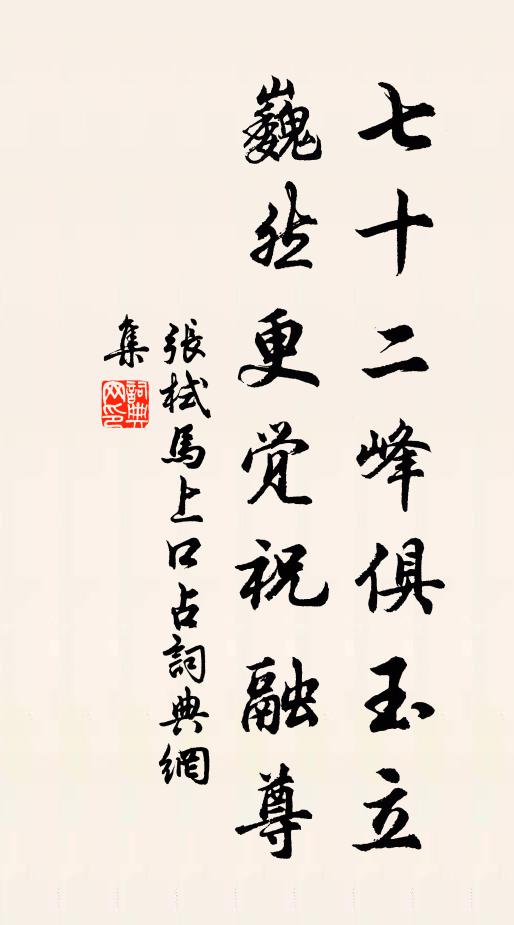 七十二峰俱玉立
巍然更觉祝融尊
張栻馬上口占詞典網
集
詞典
网印